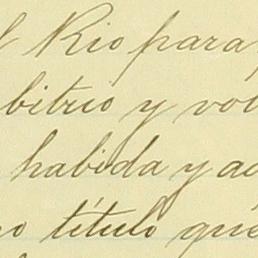 l Rio para
bitrio y vol
habida y ad
o título que